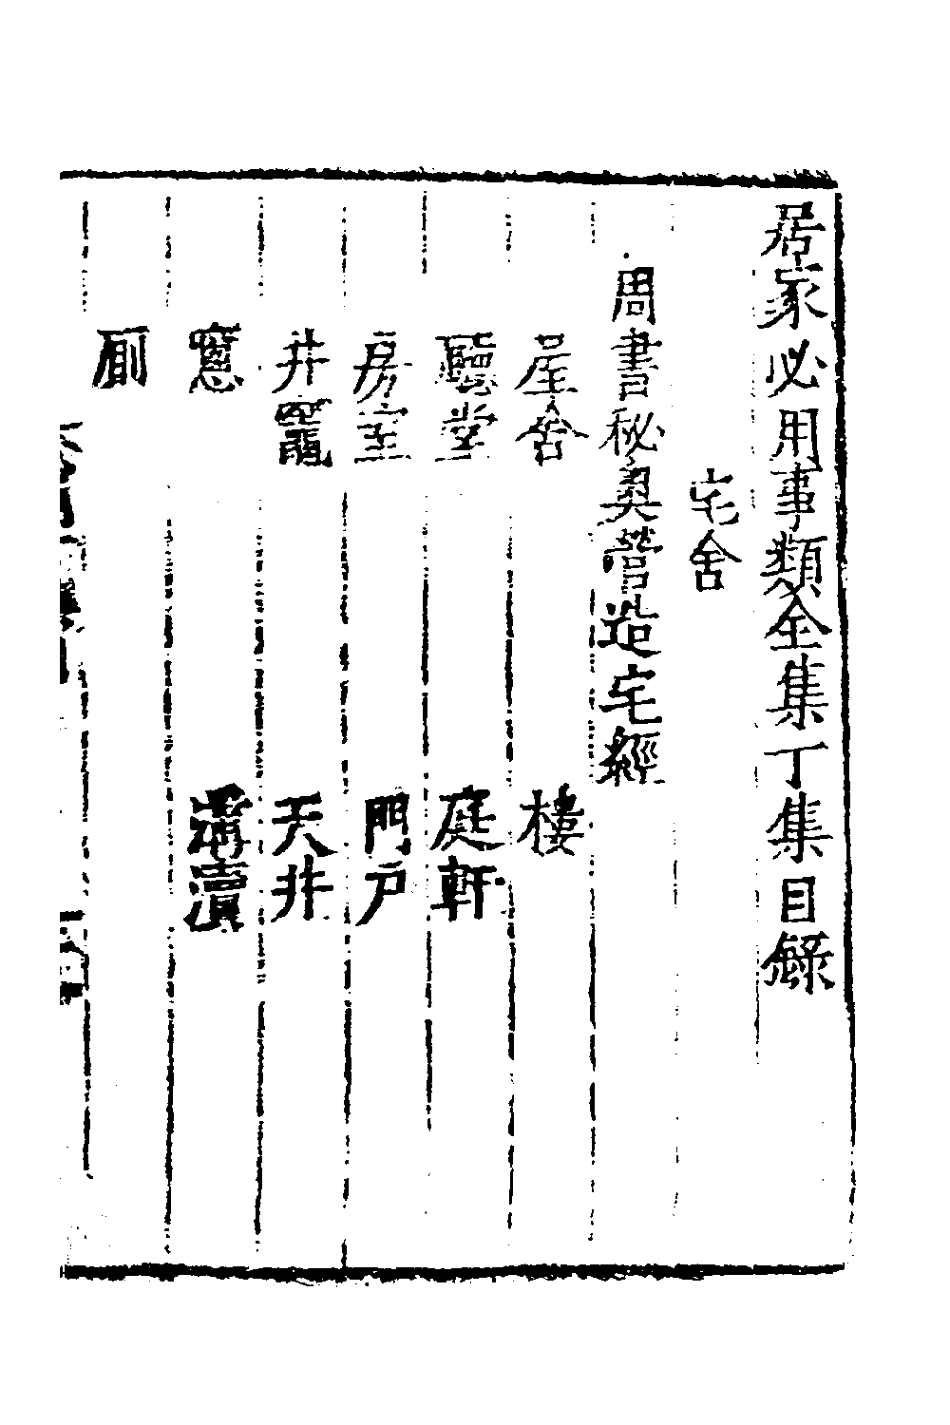 居家必用事類全集丁集目錄
宅舍
周書秘奧營造宅經
屋舍 樓
聽堂 庭軒
房室 門戶
井竈 天井
窻 溝瀆
厠